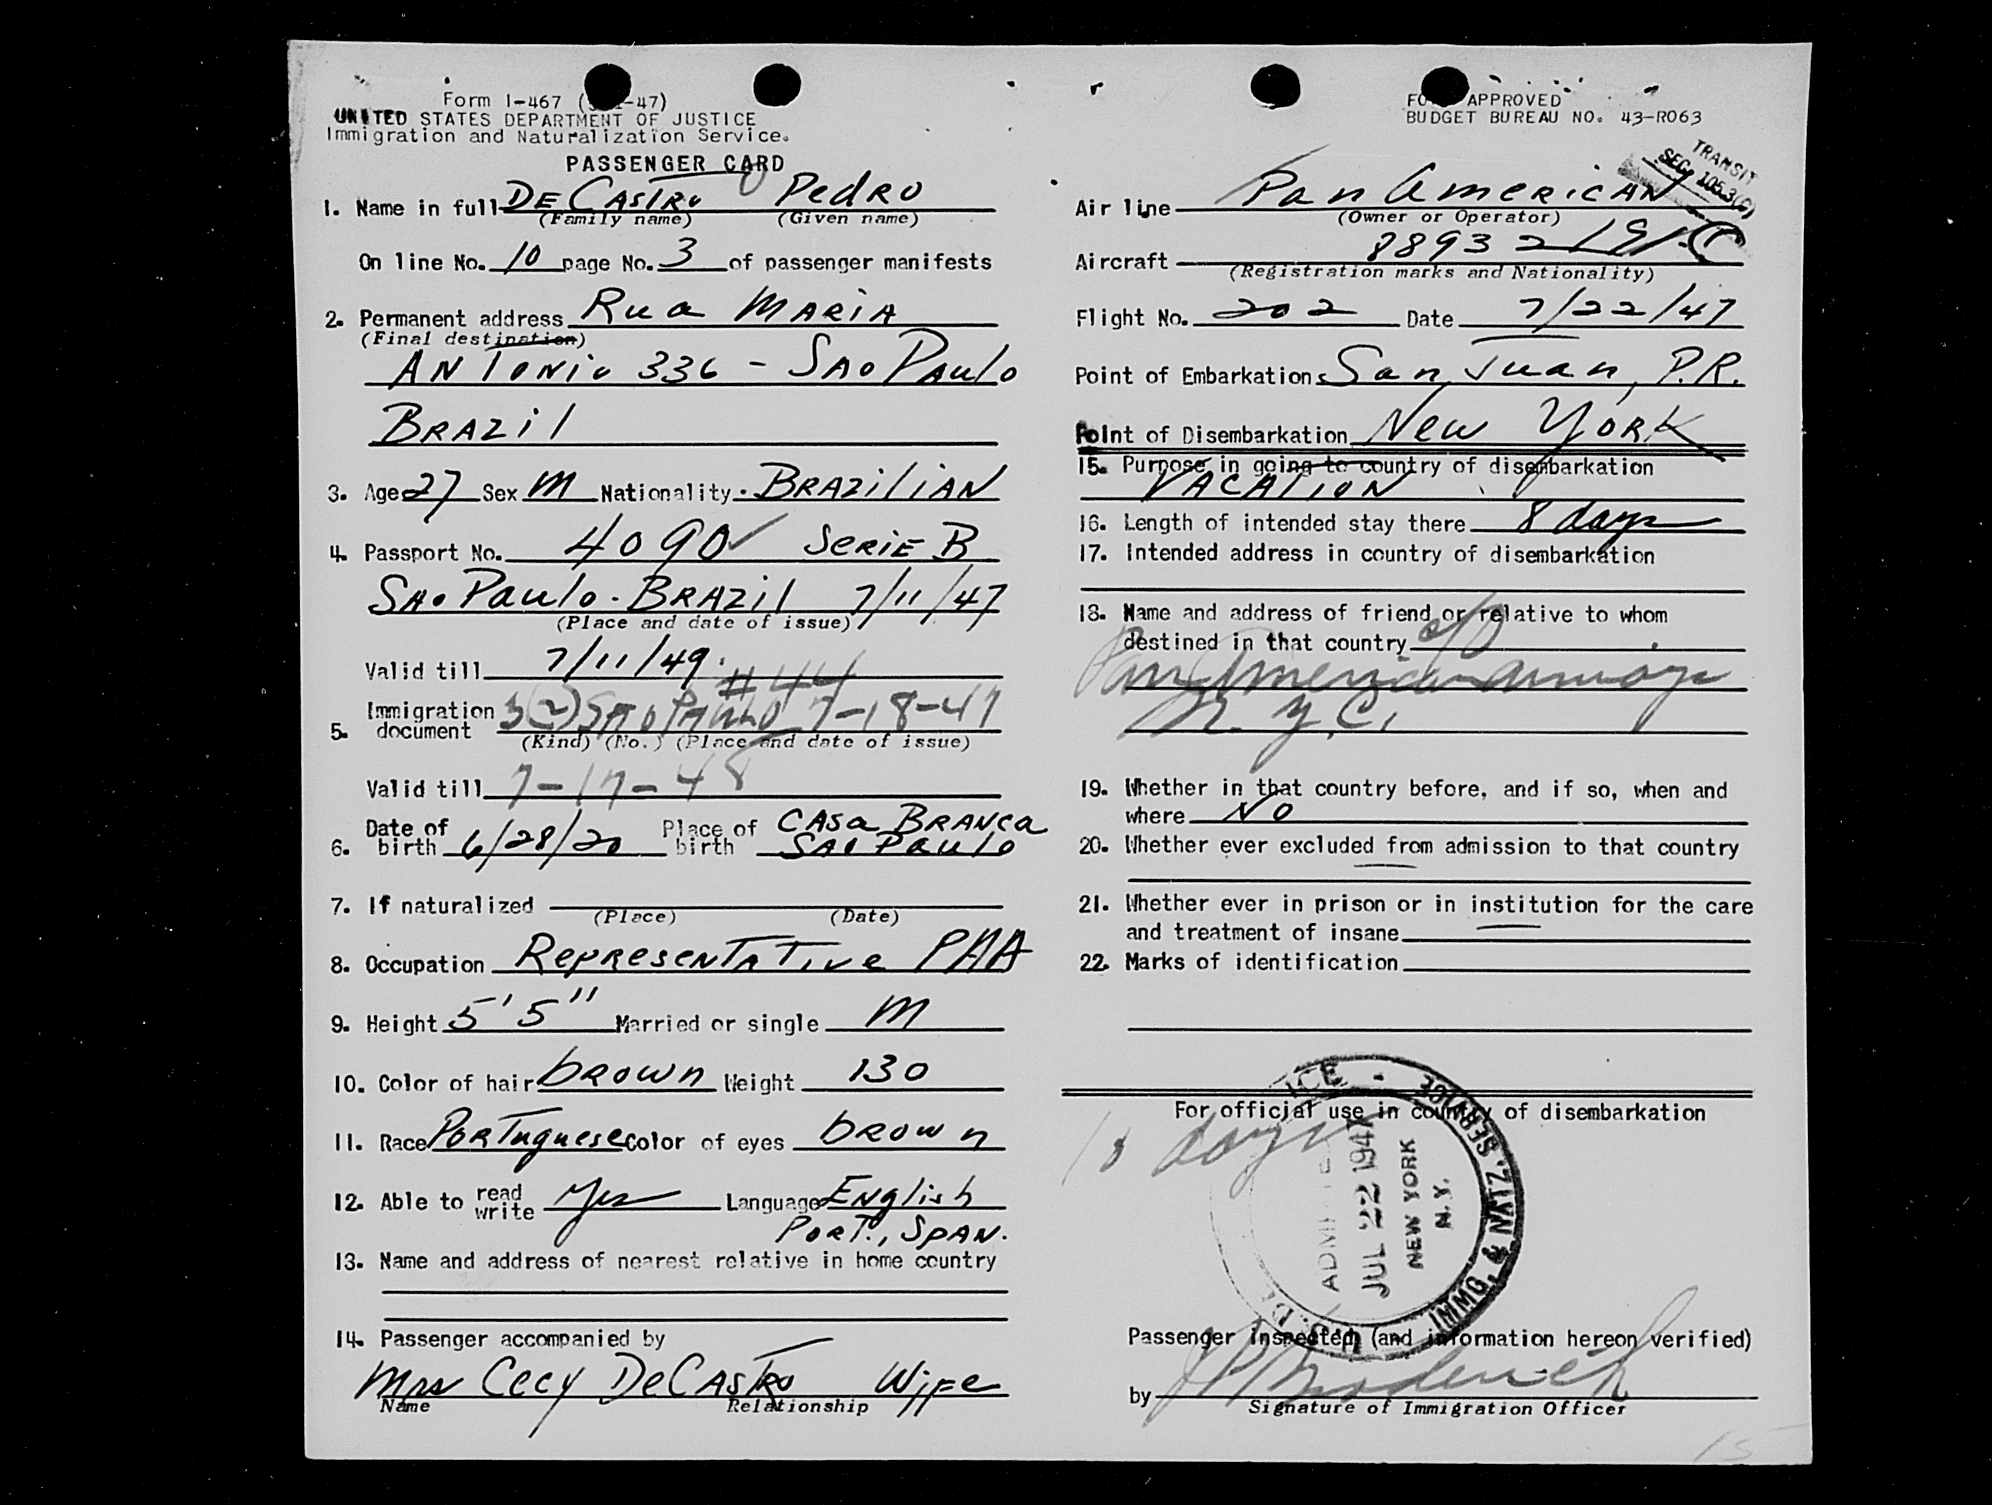 Form I-467 ( -47)
UNITED STATES DEPARTMENT OF JUSTICE
Immigration and Naturalization Service.
PASSENGER CARD
1. Name in full DE CASTRO Pedro
(Family name) (Given name)
On line No. 10 page No. 3 of passenger manifests
2. Permanent address Rua MARIA
(Final destination)
ANTONIO 336 - SAO PAULO
BRAZil
3. Age 27 Sex M Nationality. BRAZiliAN
4. Passport No. 4090 ✓ SERIE B
SAO PAulo. BRAZil 7/11/47
(Place and date of issue)
Valid till 7/11/49.
#44
5. Immigration document 3(2) SAO PAULO 7-18-47
(Kind) (No.) (Place and date of issue)
Valid till 7-17-48
6. Date of birth 6/28/20 Place of birth CASA BRANCA
SAO PAulo
7. If naturalized
(Place) (Date)
8. Occupation RepresenTATive PAA
9. Height 5'5" Married or single M
10. Color of hair brown Weight 130
11. Race PORTuguese Color of eyes brown
12. Able to read write Yes Language ENglish
PORT., SPAN.
13. Name and address of nearest relative in home country
14. Passenger accompanied by
Mrs Cecy DeCASTRO Wife
Name Relationship
FORM APPROVED
BUDGET BUREAU NO. 43-R063
TRANSIT
SEC. 105.3(C)
Air line Pan AmericAN
(Owner or Operator)
Aircraft 88932
(Registration marks and Nationality)
Flight No. 202 Date 7/22/47
Point of Embarkation San Juan, P.R.
Point of Disembarkation New YORK
15. Purpose in going to country of disembarkation
VACATION
16. Length of intended stay there 8 days
17. Intended address in country of disembarkation
18. Name and address of friend or relative to whom
destined in that country c/o
Pan American Airways
N.Y.C.
19. Whether in that country before, and if so, when and
where NO
20. Whether ever excluded from admission to that country
21. Whether ever in prison or in institution for the care
and treatment of insane
22. Marks of identification
For official use in country of disembarkation
days
ADMITTED
JUL 22 1947
NEW YORK
N.Y.
IMMG. & NATZ. SERVICE
Passenger Inspected (and information hereon verified)
by
Signature of Immigration Officer
15